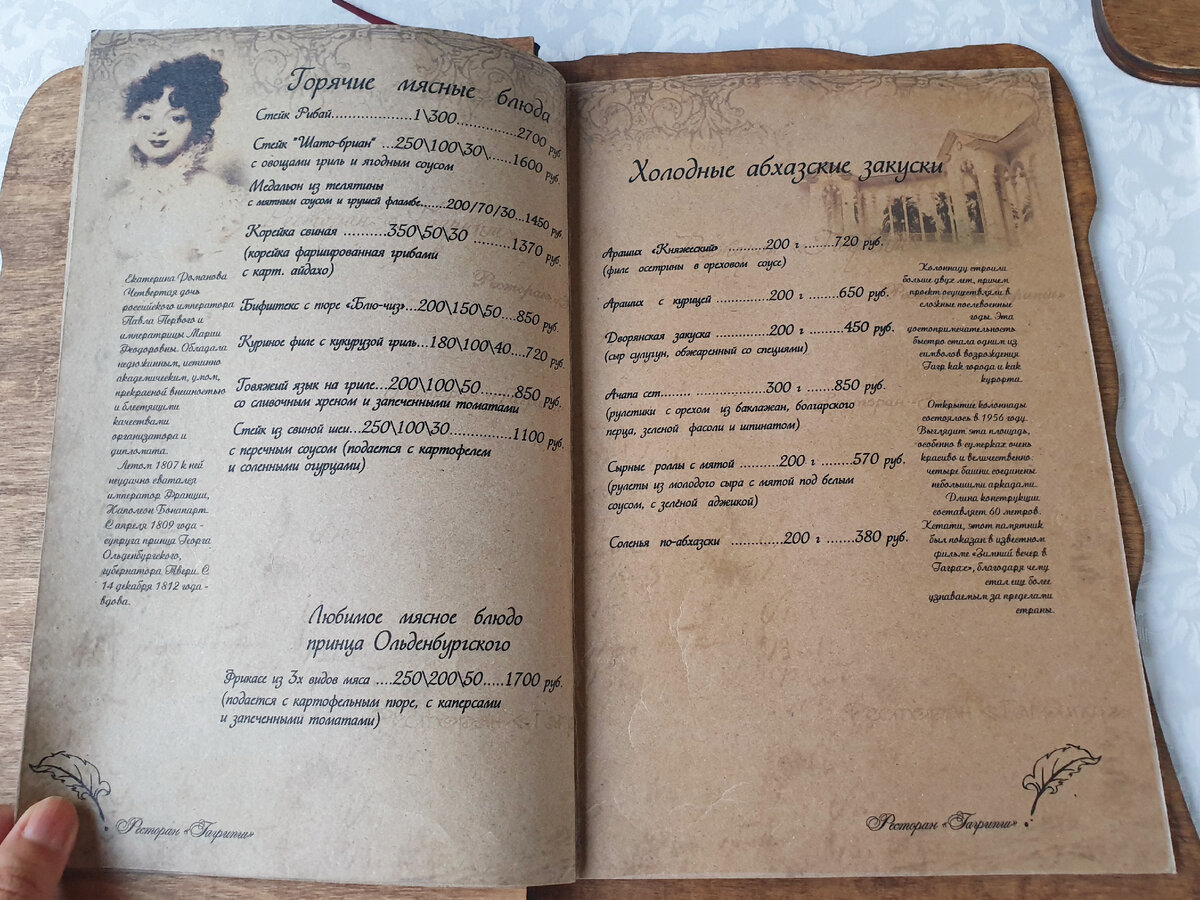 Горячие мясные блюда
Стейк Рибай....................1\300...............2700 руб.
Стейк "Шато-бриан" ...250\100\30\.......1600 руб.
с овощами гриль и ягодным соусом
Медальон из телятины
с мятным соусом и грушей фламбе.......200/70/30...1450 руб.
Корейка свиная ..........350\50\30 .........1370 руб.
(корейка фаршированная грибами
с карт. айдахо)
Бифштекс с пюре «Блю-чиз»...200\150\50...850 руб.
Куриное филе с кукурузой гриль...180\100\40....720 руб.
Говяжий язык на гриле...200\100\50.........850 руб.
со сливочным хреном и запеченными томатами
Стейк из свиной шеи...250\100\30..............1100 руб.
с перечным соусом (подается с картофелем
и соленными огурцами)
Любимое мясное блюдо
принца Ольденбургского
Фрикасе из 3х видов мяса ....250\200\50.....1700 руб.
(подается с картофельным пюре, с каперсами
и запеченными томатами)
Екатерина Романова
Четвертая дочь
российского императора
Павла Первого и
императрицы Марии
Феодоровны. Обладала
недюжинным, истинно
академическим, умом,
прекрасной внешностью
и блестящими
качествами
организатора и
дипломата.
Летом 1807 к ней
неудачно сватался
император Франции,
Наполеон Бонапарт.
С апреля 1809 года -
супруга принца Георга
Ольденбургского,
губернатора Твери. С
14 декабря 1812 года -
вдова.
Ресторан «Гагрипш»
Холодные абхазские закуски
Арашых «Княжеский» ..........200 г ........720 руб.
(филе осетрины в ореховом соусе)
Арашых с курицей ..............200 г ........650 руб.
Дворянская закуска ..............200 г .........450 руб.
(сыр сулугун, обжаренный со специями)
Ачапа сет................... 300 г .......850 руб.
(рулетики с орехом из баклажан, болгарского
перца, зеленой фасоли и шпинатом)
Сырные роллы с мятой ..........200 г ........570 руб.
(рулеты из молодого сыра с мятой под белым
соусом, с зелёной аджикой)
Соленья по-абхазски ..............200 г .......380 руб.
Колоннаду строили
больше двух лет, причем
проект осуществляли в
сложные послевоенные
годы. Эта
достопримечательность
быстро стала одним из
символов возрождения
Гагр как города и как
курорта.
Открытие колоннады
состоялось в 1956 году.
Выглядит эта площадь,
особенно в сумерках очень
красиво и величественно:
четыре башни соединены
небольшими аркадами.
Длина конструкции
составляет 60 метров.
Кстати, этот памятник
был показан в известном
фильме «Зимний вечер в
Гаграх», благодаря чему
стал еще более
узнаваемым за пределами
страны.
Ресторан «Гагрипш»